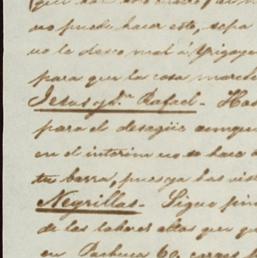 no puede hacer esto, sepa
no le deseo mal á Yrigoye
para que la cosa march
Jesus y Sn. Rafael - Has
para el desagüe aunque
en el interin no se hace
tu barra, pues ya has vis
Negrillas - Sigue sin
de las labores altas que q
en Pachuca 60 cargas